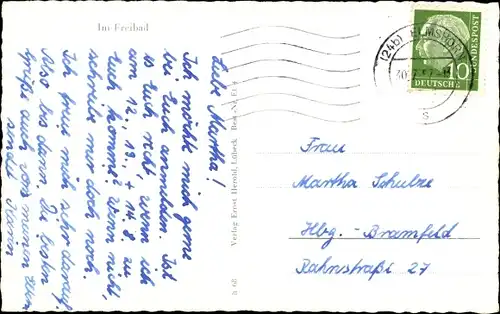 Im Freibad
Liebe Martha!
Ich möchte mich gerne
bei Euch anmelden. Ist
es Euch recht, wenn ich
am 12., 13., + 14. 8. zu
Euch komme? Wenn nicht,
schreibe mir doch noch.
Ich freue mich schon darauf.
Also bis dann. Die besten
Grüße auch von meinen
sendet
Verlag Ernst Herold, Lübeck
(24b) ELMSHORN
DEUTSCHE
BUNDESPOST
10
Frau
Martha Schulze
Hbg.-Bramfeld
Rahnstraße 27